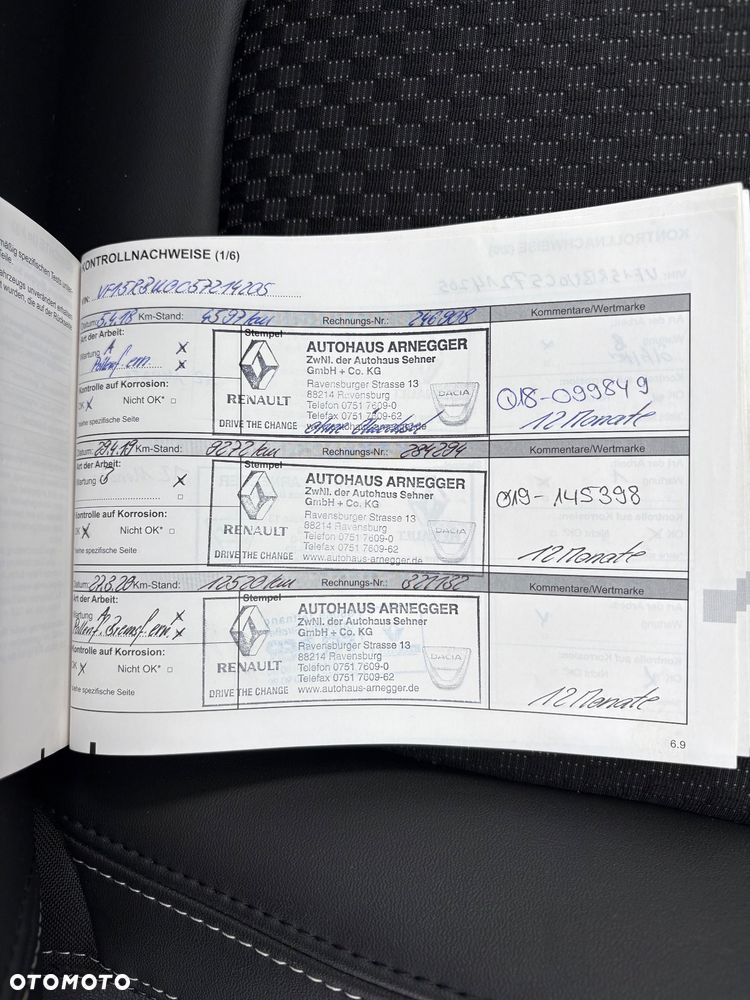 mäßig spezifischen Tests unter-
Teile
unverändert erhalten
wurden, die auf der Rückseite
KONTROLLNACHWEISE (1/6)
VIN:
Datum: 5.4.18 Km-Stand: 4597 km Rechnungs-Nr.: 246908 Kommentare/Wertmarke
Art der Arbeit:
Wartung A X
Pollenf. ern. X
Kontrolle auf Korrosion:
OK X Nicht OK* □
siehe spezifische Seite
Stempel
RENAULT
DRIVE THE CHANGE
AUTOHAUS ARNEGGER
ZwNl. der Autohaus Sehner
GmbH + Co. KG
Ravensburger Strasse 13
88214 Ravensburg
Telefon 0751 7609-0
Telefax 0751 7609-62
www.autohaus-arnegger.de
DACIA
Q18-099849
12 Monate
Datum: 29.4.19 Km-Stand: 9272 km Rechnungs-Nr.: 284294 Kommentare/Wertmarke
Art der Arbeit:
Wartung X
Kontrolle auf Korrosion:
OK X Nicht OK* □
siehe spezifische Seite
Stempel
RENAULT
DRIVE THE CHANGE
AUTOHAUS ARNEGGER
ZwNl. der Autohaus Sehner
GmbH + Co. KG
Ravensburger Strasse 13
88214 Ravensburg
Telefon 0751 7609-0
Telefax 0751 7609-62
www.autohaus-arnegger.de
DACIA
Q19-145398
12 Monate
Datum: Km-Stand: 12520 km Rechnungs-Nr.: 321132 Kommentare/Wertmarke
Art der Arbeit:
Wartung A X
Pollenf. Bremsfl. ern. X
Kontrolle auf Korrosion:
OK X Nicht OK* □
siehe spezifische Seite
Stempel
RENAULT
DRIVE THE CHANGE
AUTOHAUS ARNEGGER
ZwNl. der Autohaus Sehner
GmbH + Co. KG
Ravensburger Strasse 13
88214 Ravensburg
Telefon 0751 7609-0
Telefax 0751 7609-62
www.autohaus-arnegger.de
DACIA
12 Monate
6.9
OTOMOTO